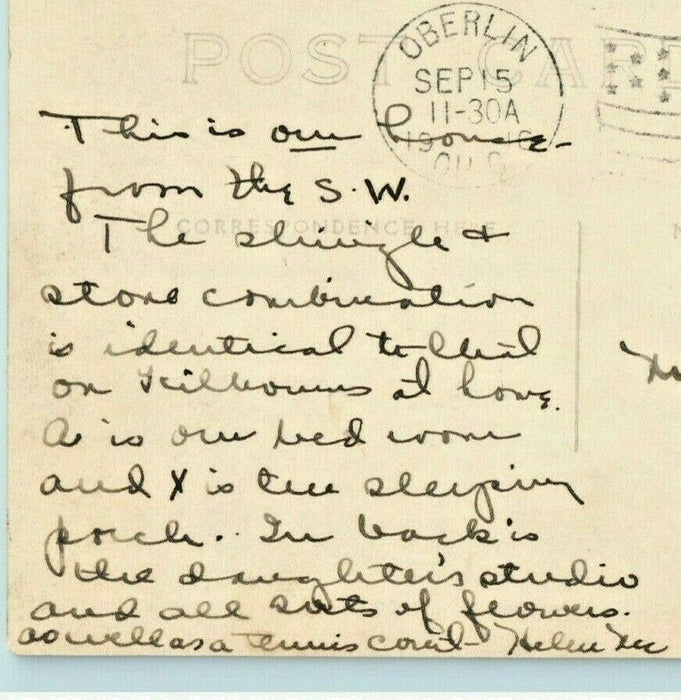 POST CARD
OBERLIN
SEP 15
11-30A
This is our house
from the S.W.
CORRESPONDENCE HERE
The shingle +
stone combination
is identical to that
on at home.
A is our bed room
and X is the sleeping
porch. In back is
the daughter's studio
and all sorts of flowers.
as well as a tennis court - Helen